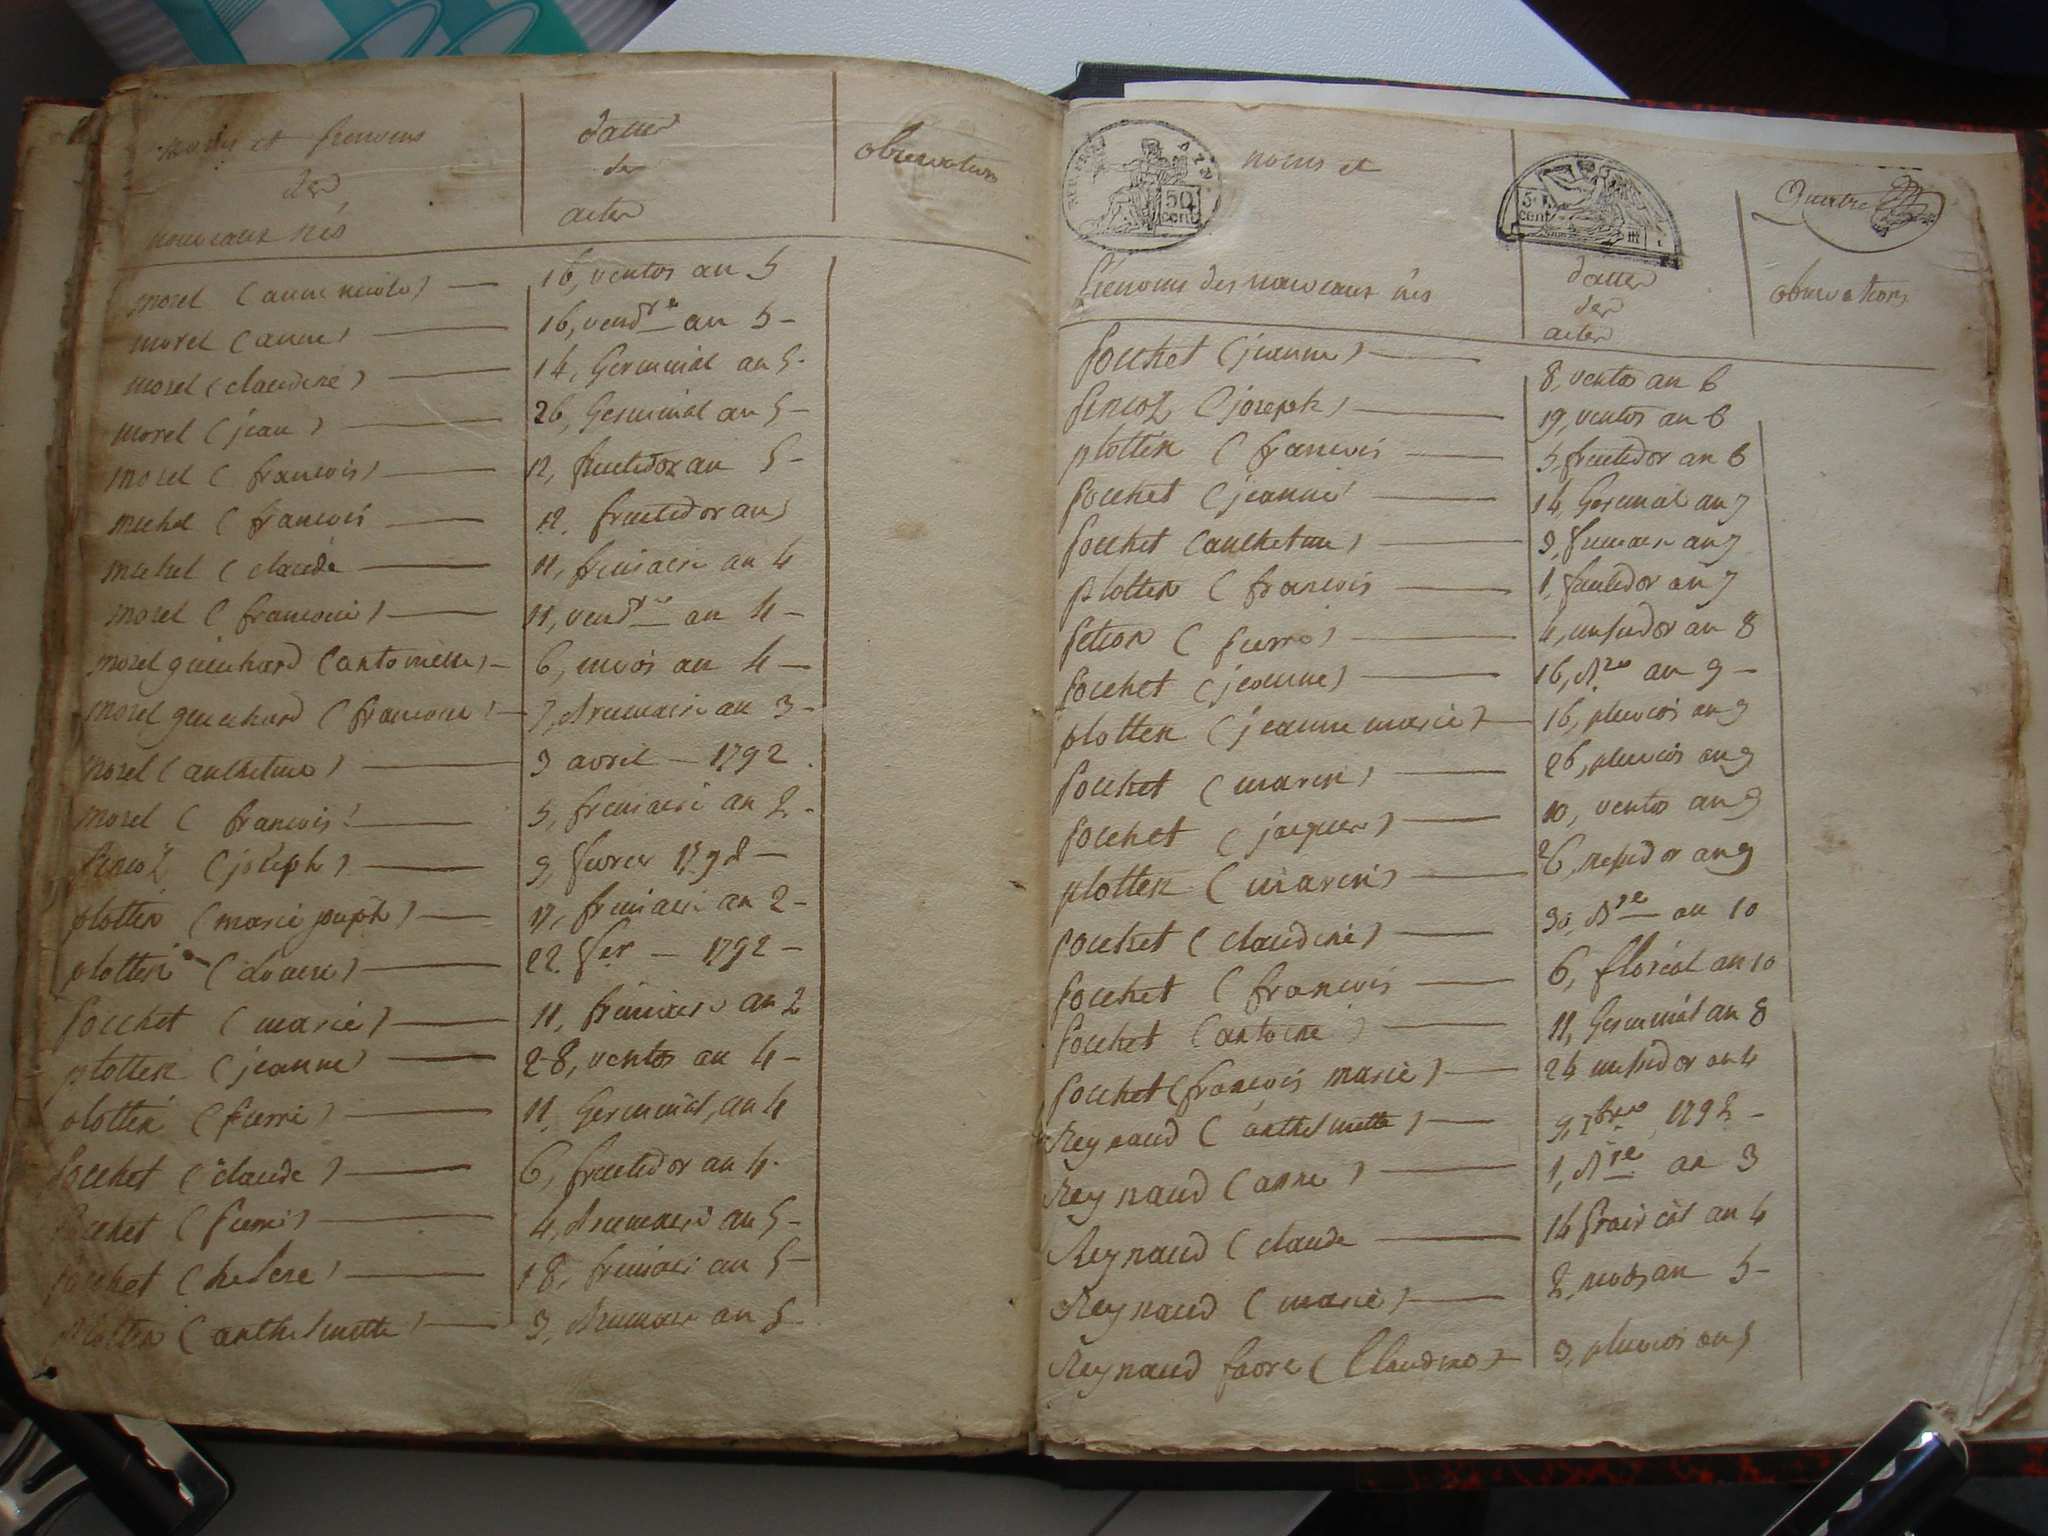 noms et prenoms
des
nouveaux nés
dattes
des
actes
observations
morel (anne nicole) 16, ventos an 5
morel (anne) 16, vend^re an 5
morel (claudine) 14, Germinal an 5
morel (jean) 26, Germinal an 5
morel (francois) 12, fructidor an 5
michel (francois 12, fructidor an 5
michel (claude 11, frimaire an 4
morel (francoise) 11, vend^re an 4
morel guichard (antoinette) 6, nivos an 4
morel guichard (francoise) 7, Brumaire an 3
morel (anthelme) 3 avril 1792
morel (francois) 5, frimaire an 2
pencoz (joseph) 9, fevrier 1792
plottin (marie joseph) 17, frimaire an 2
plottin (                ) 22 fer 1792
pochet (marie) 11, frimaire an 2
plottin (jeanne) 28, ventos an 4
plottin (pierre) 11, Germinal, an 4
pochet (claude) 6, fructidor an 4
pochet (pierre) 4, Brumaire an 5
pochet (helene) 18, frimaire an 5
plottin (anthelmette) 3, Brumaire an 5
REP. FRA.
50
cent
noms et
prenoms des nouveaux nés
5
cent
dattes
des
actes
Quatre
observations
pochet (jeanne) 8, ventos an 6
pencoz (joseph) 19, ventos an 6
plottin (francois 5, fructidor an 6
pochet (jeanne) 14, Germinal an 7
pochet (anthelme) 9, frimaire an 7
plottin (francois 1, fructidor an 7
petion (pierre) 4, messidor an 8
pochet (jeanne) 16, B^re an 9
plotten (jeanne marie) 16, pluvios an 9
pochet (marin) 26, pluvios an 9
pochet (jacques) 10, ventos an 9
plotten (marin) 26, messidor an 9
pochet (claudine) 30, B^re an 10
pochet (francois 6, floréal an 10
pochet (antoine) 11, Germinal an 8
pochet (françois marie) 24 messidor an 4
Reynaud (anthelmette) 9, 7bre 1792
Reynaud (anne) 1, B^re an 3
Reynaud (claude 14 prairial an 4
Reynaud (marie) 2, nivos an 5
Reynaud favre (Claudine) 3, pluvios an 5